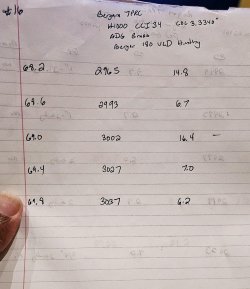 #16
Bergara
H1000 CCI 34 CBL 3.3340"
ADG Brass
Berger 180 VLD Hunting
68.2 2965 14.8
68.6 2993 6.7
69.0 3002 16.4 —
69.4 3027 7.0
69.8 3037 6.2